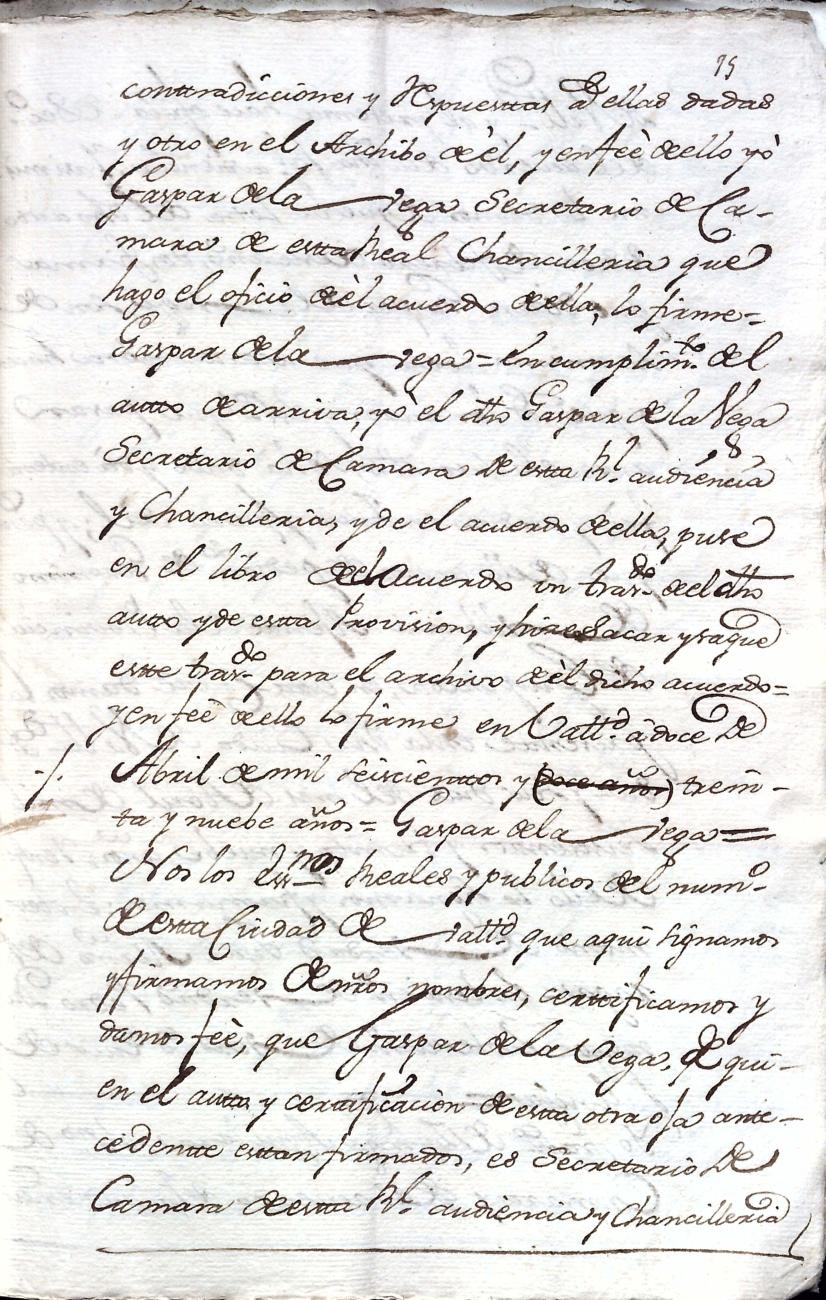 75
conttradicciones y Respuesttas â ellas dadas
y otro en el Archibo de èl, y en feè de ello yò
Gaspar de la vega Secretario de Ca-
mara de estta Real Chancilleria que
hago el oficio de èl acuerdo de ella, lo firme=
Gaspar de la vega = En cumplim.to del
autto de arriva, yò el dho Gaspar de la Vega
Secretario de Camara de estta R.l audiencia
y Chancilleria, y de el acuerdo de ella, puse
en el libro del Acuerdo un tras.do del dho
autto y de estta Provision, y hize Sacar y saque
estte tras.do para el archivo de èl dicho acuerdo=
y en feè de ello lo firme en Vall.d â doce De
Abril de mil seiscienttos y (doce años) trein-
ta y nuebe años= Gaspar de la vega=
Nos los Ess.nos Reales y publicos del num.o
de estta Ciudad de Vall.d que aqui signamos
y firmamos de nros nombres, certtificamos y
damos feè, que Gaspar de la Vega, de qui-
en el autto y certtificaciòn de estta otra oja ante-
cedentte esttan firmados, es Secretario De
Camara de estta R.l audiencia y Chancilleria